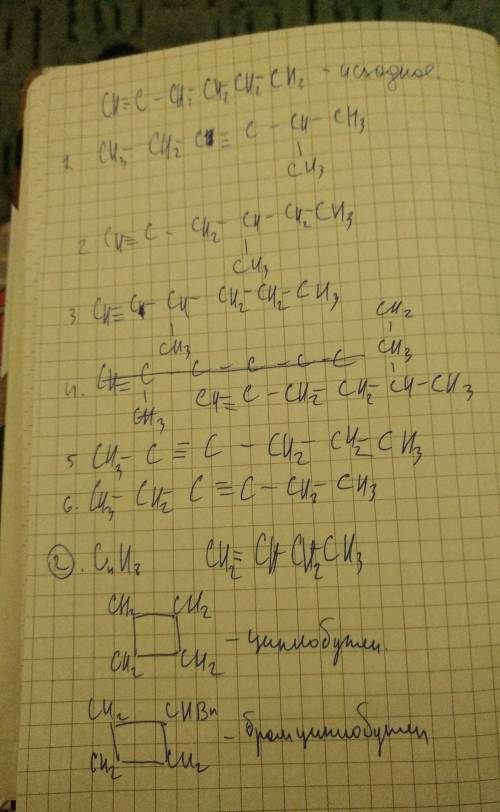 CH≡C - CH₂ - CH₂ - CH₂ - CH₂ - исходное.
1. CH₃ - CH₂ - C≡C - CH - CH₃
CH₃
2. CH≡C - CH₂ - CH - CH₂ - CH₃
CH₃
3. CH≡C - CH - CH₂ - CH₂ - CH₃
CH₃
4. CH≡C - C - C - C - C
CH₃
CH₂
CH₃
CH≡C - CH₂ - CH₂ - CH - CH₃
5. CH₃ - C≡C - CH₂ - CH₂ - CH₃
6. CH₃ - CH₂ - C≡C - CH₂ - CH₃
2. C₄H₈ CH₂=CH-CH₂-CH₃
CH₂ CH₂
CH₂ CH₂ - циклобутан.
CH₂ CHBr
CH₂ CH₂ - бромциклобутан